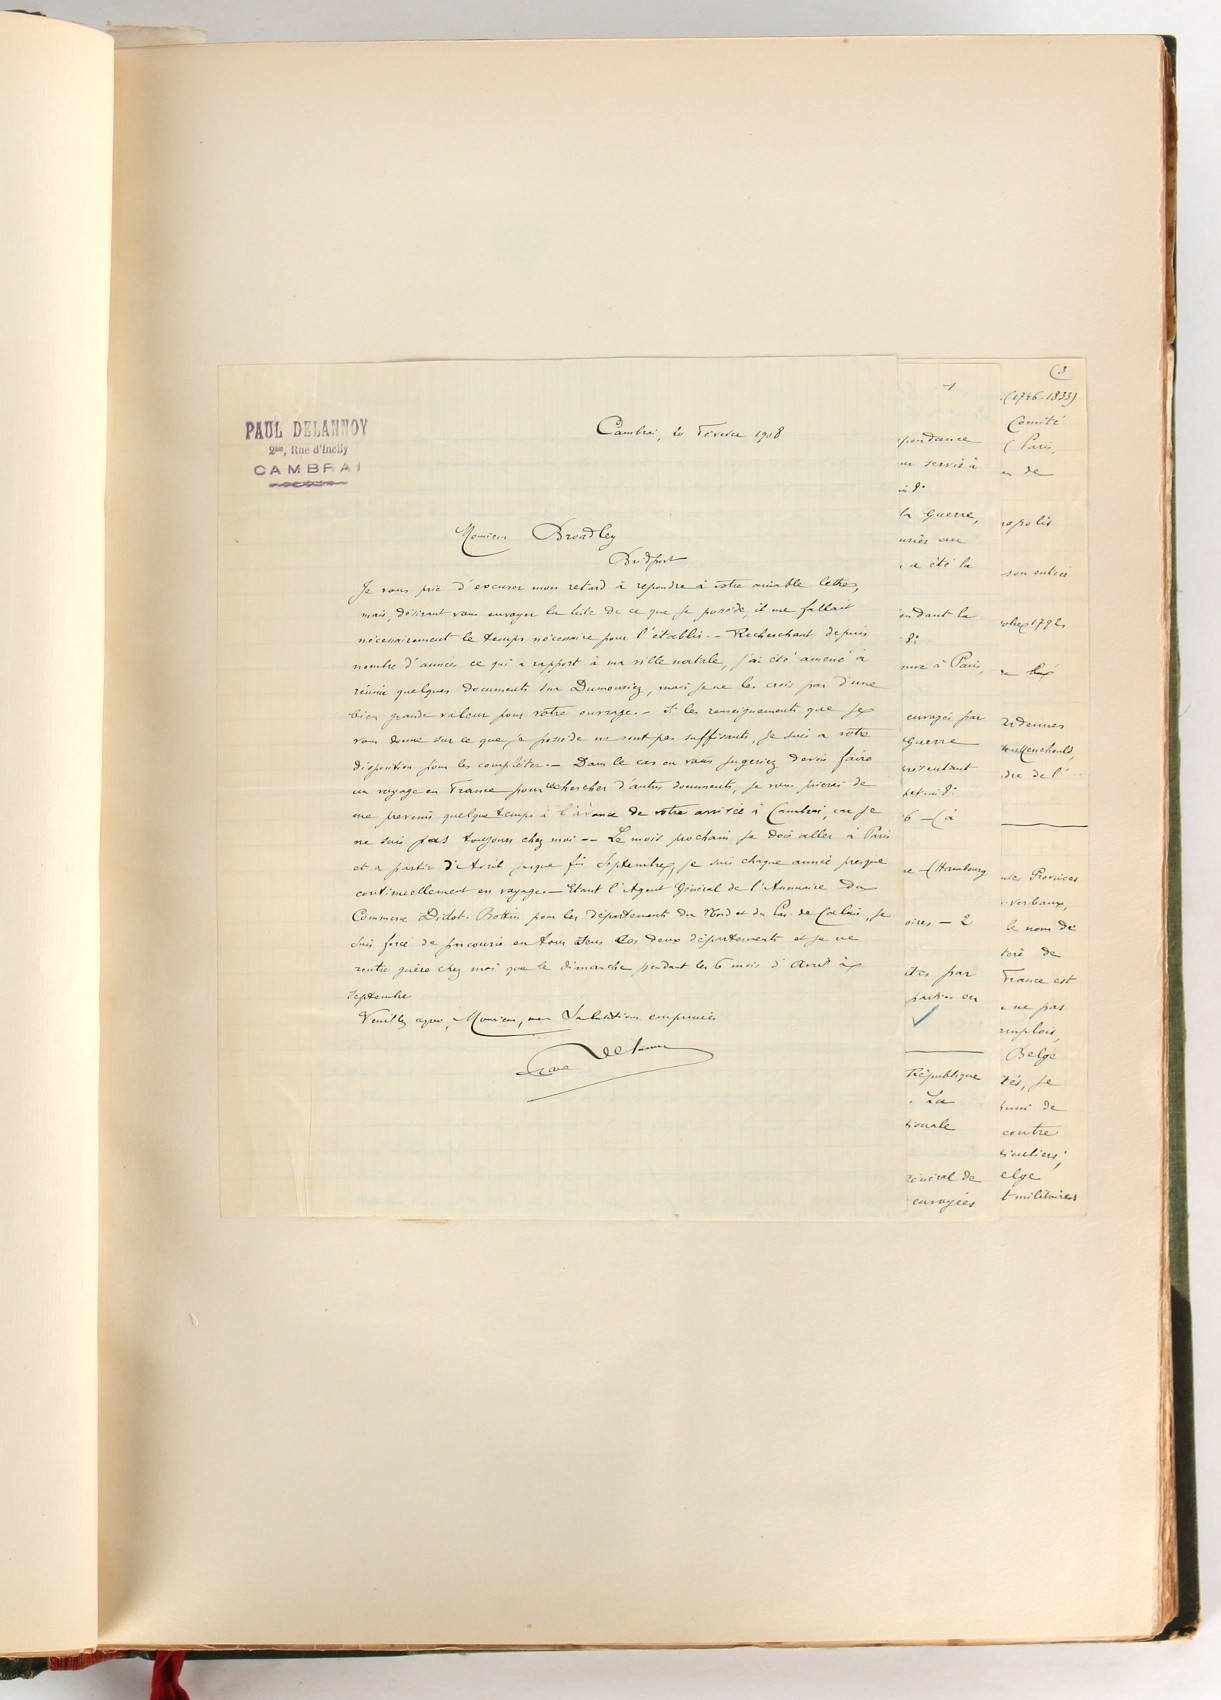 PAUL DELANNOY
2bis, Rue d'Inchy
CAMBRAI
Cambrai, 20 Février 1908
Monsieur Broadley
Bridport
Je vous prie d'excuser mon retard à répondre à votre aimable lettre,
mais, désirant vous envoyer la liste de ce que je possède, il me fallait
nécessairement le temps nécessaire pour l'établir. — Recherchant depuis
nombre d'années ce qui a rapport à ma ville natale, j'ai été amené à
réunir quelques documents sur Dumouriez, mais je ne les crois pas d'une
bien grande valeur pour votre ouvrage. — Si les renseignements que je
vous donne sur ce que je possède ne sont pas suffisants, je suis à votre
disposition pour les compléter. — Dans le cas où vous jugeriez devoir faire
un voyage en France pour rechercher d'autres documents, je vous prierai de
me prévenir quelque temps à l'avance de votre arrivée à Cambrai, car je
ne suis pas toujours chez moi — Le mois prochain je dois aller à Paris
et a partir d'Avril jusque fin Septembre, je suis chaque année presque
continuellement en voyage. — Etant l'Agent Général de l'Annuaire du
Commerce Didot-Bottin pour les départements du Nord et du Pas-de-Calais, je
suis forcé de parcourir en tous sens les deux départements et je ne
rentre guère chez moi que le dimanche pendant les 6 mois d'Avril à
Septembre
Veuillez agréer, Monsieur, mes Salutations empressées
Delannoy
1
pondance
servir à
la Guerre,
a été la
endant la
à Paris,
envoyés par
Guerre
6 — (à
(Hambourg
oires — 2
par
parties en
République
La
tionale
Général de
envoyées
(3
(1746-1833)
Comité
(Paris,
de
ropolis
son entier
1792
Ardennes
dre de l'
Provinces
verbaux,
le nom de
de
France est
ne pas
emplois,
Belge
tés, je
de
contre
elge
t militaires